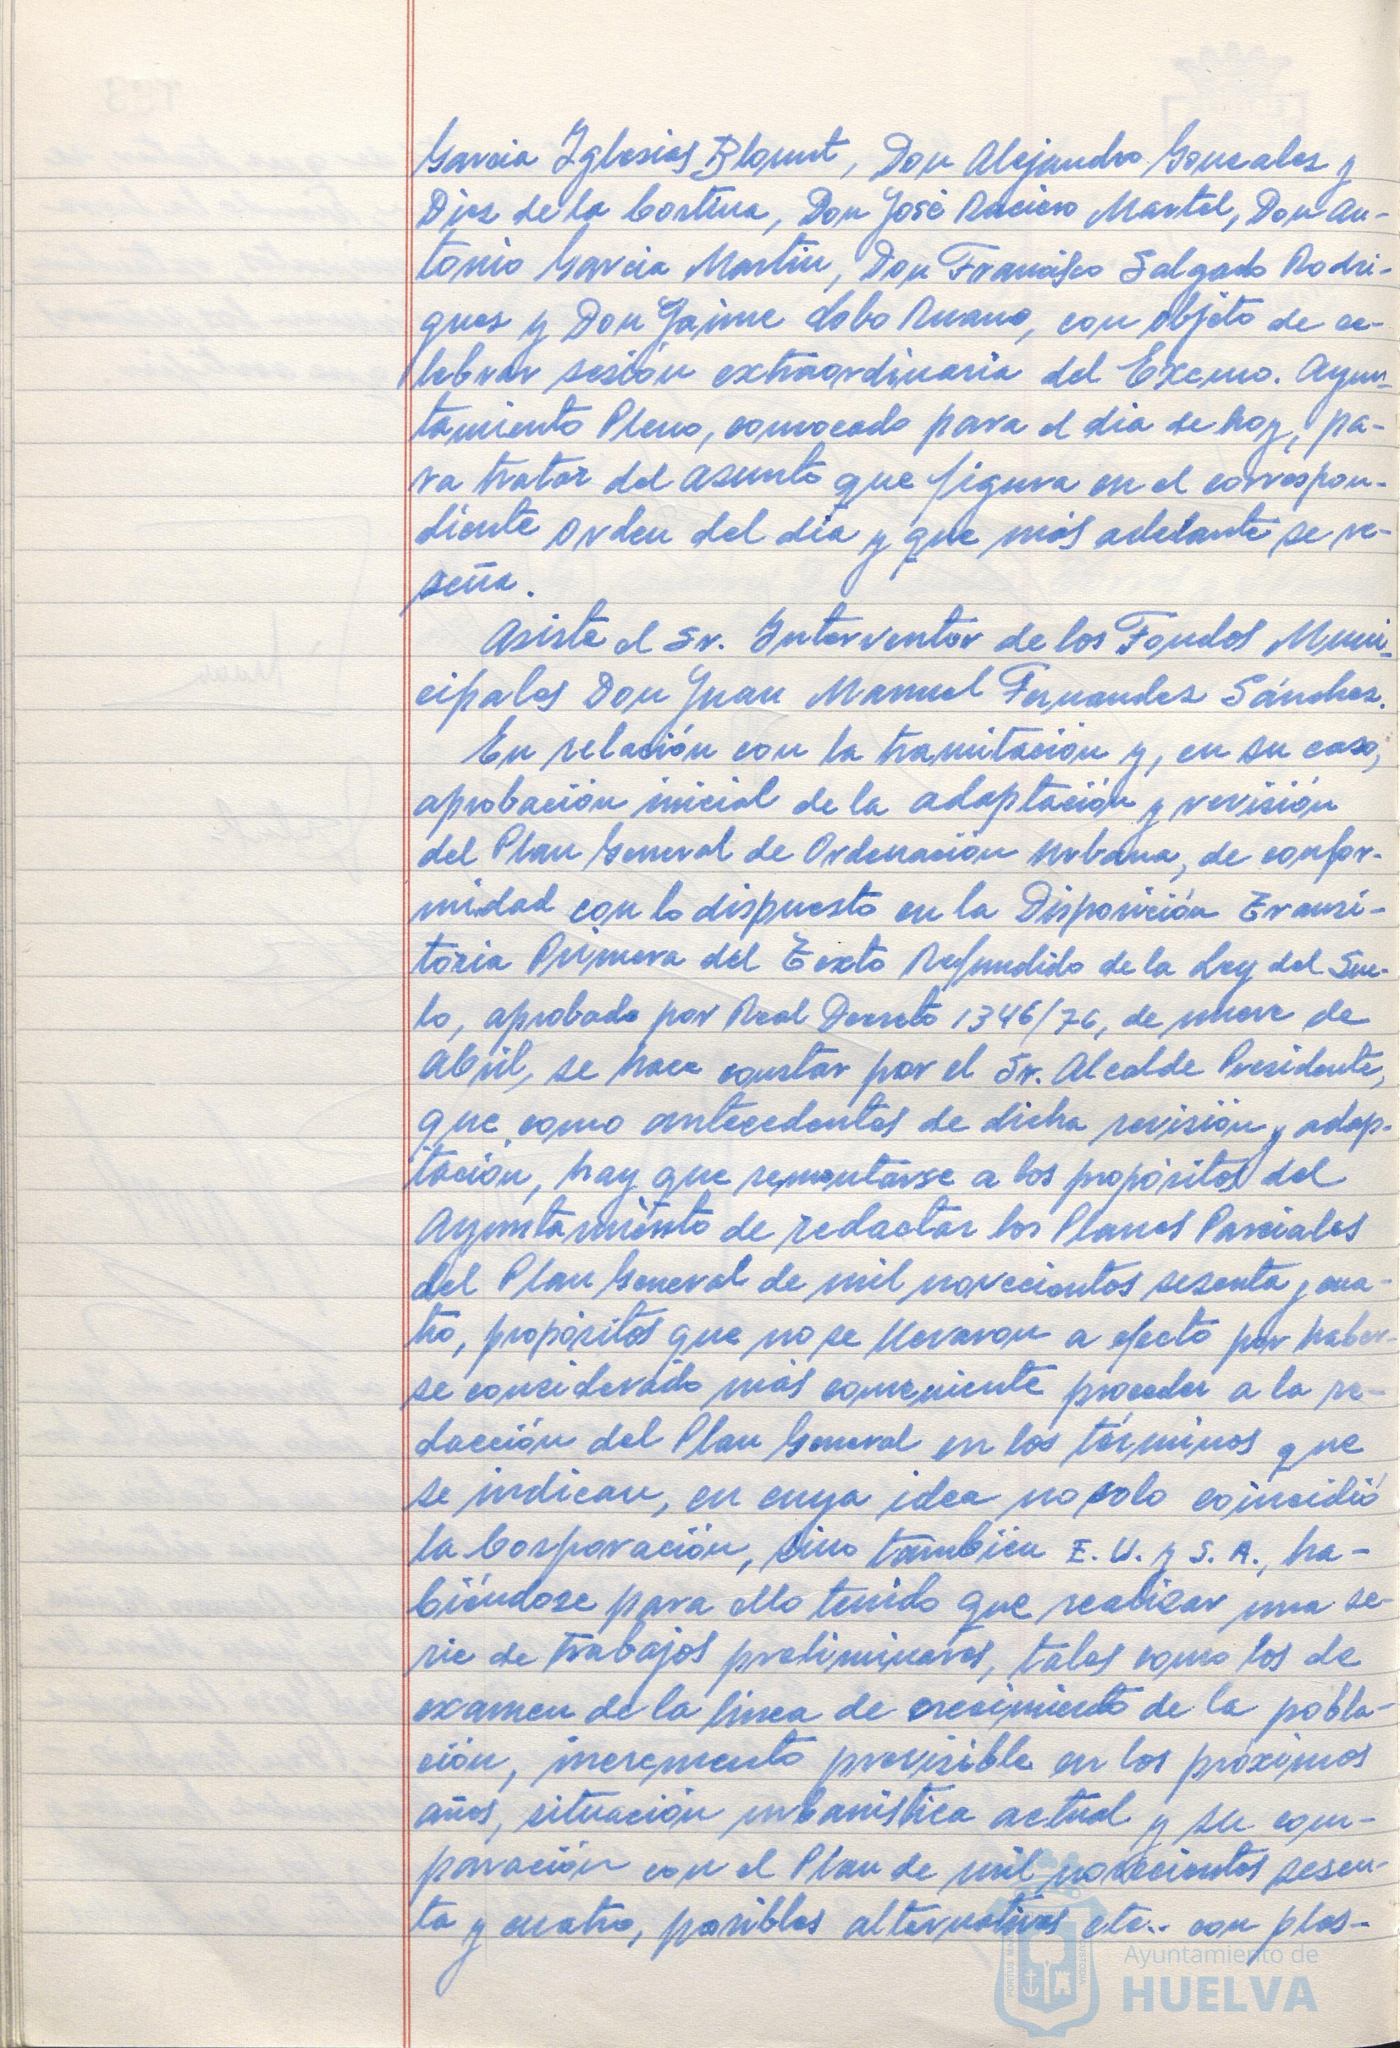 Garcia Iglesias Blount, Don Alejandro Gonzalez y
Diez de la Cortina, Don José Raciero Martel, Don An-
tonio Garcia Martin, Don Francisco Salgado Rodri-
guez y Don Jaime Lobo Ruano, con objeto de ce-
lebrar sesión extraordinaria del Excmo. Ayun-
tamiento Pleno, convocado para el dia de hoy, pa-
ra tratar del asunto que figura en el correspon-
diente Orden del dia y que más adelante se re-
seña.
Asiste el Sr. Interventor de los Fondos Muni-
cipales Don Juan Manuel Fernandez Sánchez.
En relación con la tramitación y, en su caso,
aprobación inicial de la adaptación y revisión
del Plan General de Ordenación Urbana, de confor-
midad con lo dispuesto en la Disposición Transi-
toria Primera del Texto Refundido de la Ley del Sue-
lo, aprobado por Real Decreto 1346/76, de nueve de
Abril, se hace constar por el Sr. Alcalde Presidente,
que como antecedentes de dicha revisión y adap-
tación, hay que remontarse a los propósitos del
Ayuntamiento de redactar los Planes Parciales
del Plan General de mil novecientos sesenta y cua-
tro, propósitos que no se llevaron a efecto por haber-
se considerado más conveniente proceder a la re-
dacción del Plan General en los términos que
se indican, en cuya idea no solo coincidió
la Corporación, sino también E. U. y S. A., ha-
biéndose para ello tenido que realizar una se-
rie de trabajos preliminares, tales como los de
examen de la linea de crecimiento de la pobla-
ción, incremento previsible en los próximos
años, situación urbanistica actual y su com-
paración con el Plan de mil novecientos sesen-
ta y cuatro, posibles alternativas etc.. con plas-
PORTUS MARIS
CUSTODIA
Ayuntamiento de
HUELVA